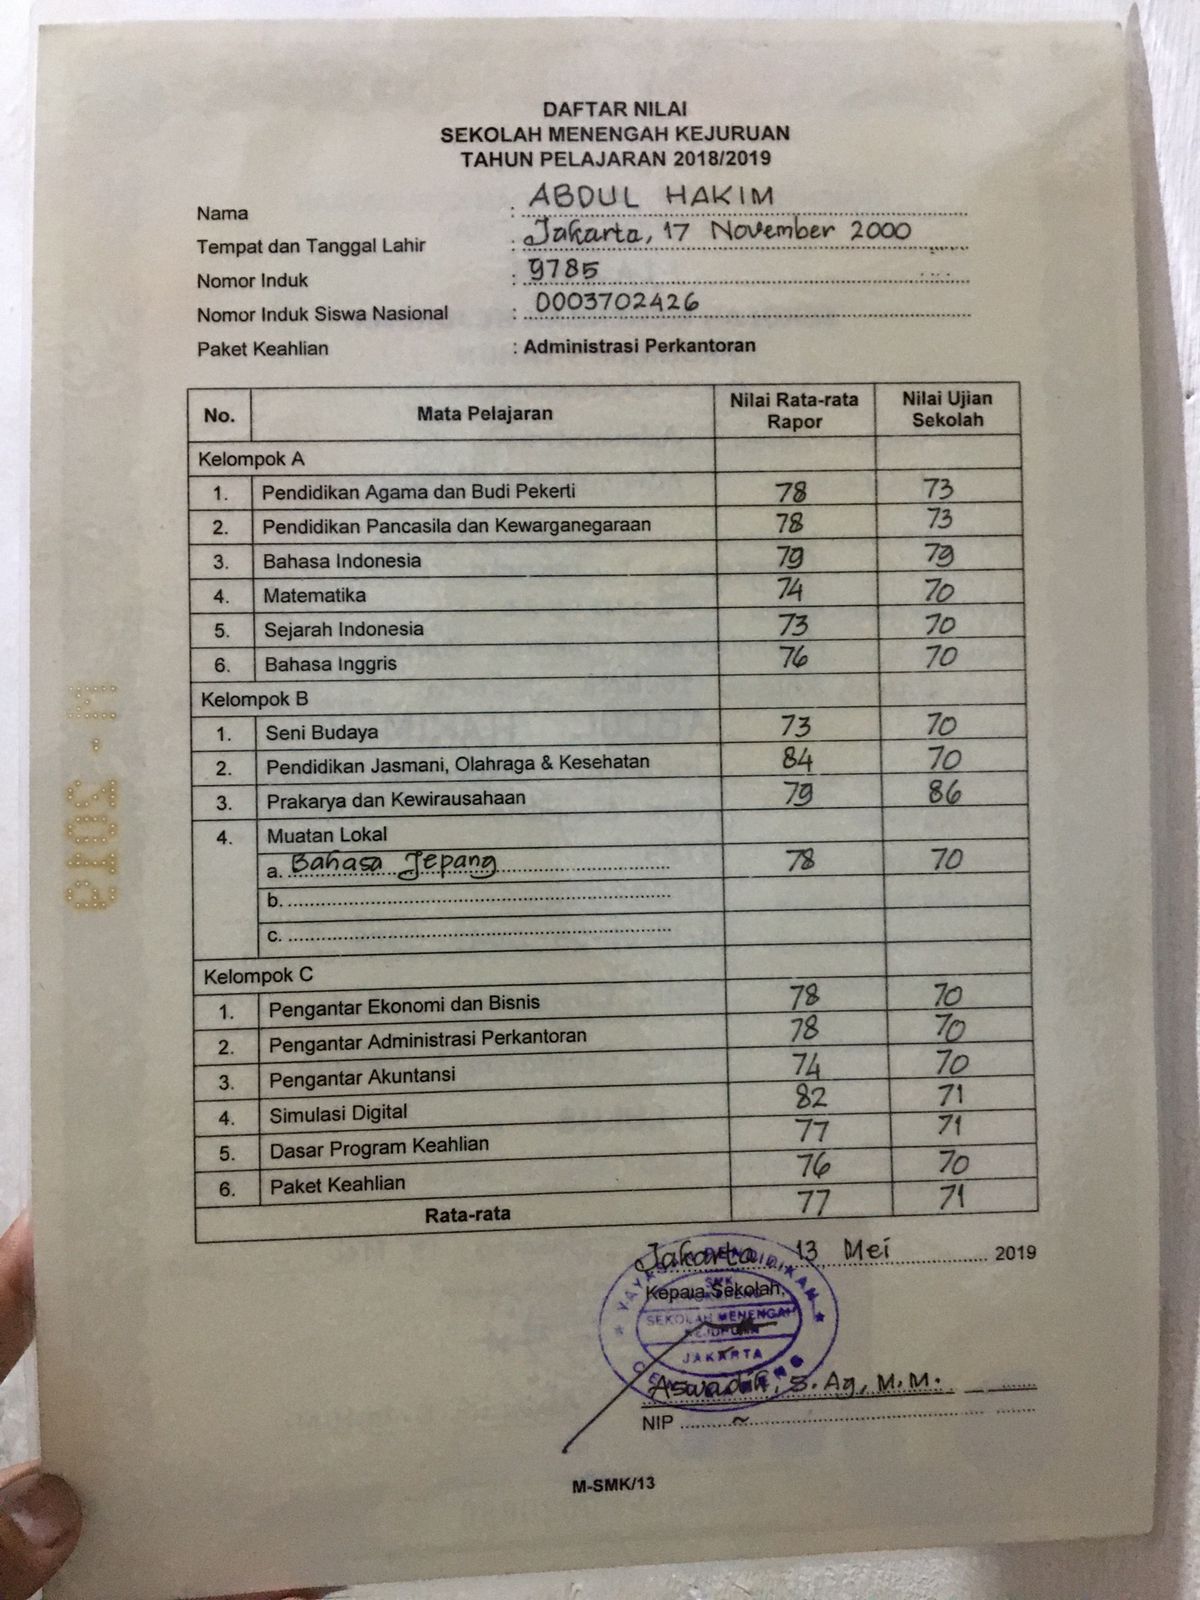 DAFTAR NILAI
SEKOLAH MENENGAH KEJURUAN
TAHUN PELAJARAN 2018/2019
Nama : ABDUL HAKIM
Tempat dan Tanggal Lahir : Jakarta, 17 November 2000
Nomor Induk : 9785
Nomor Induk Siswa Nasional : 0003702426
Paket Keahlian : Administrasi Perkantoran
No. Mata Pelajaran Nilai Rata-rata Rapor Nilai Ujian Sekolah
Kelompok A
1. Pendidikan Agama dan Budi Pekerti 78 73
2. Pendidikan Pancasila dan Kewarganegaraan 78 73
3. Bahasa Indonesia 79 79
4. Matematika 74 70
5. Sejarah Indonesia 73 70
6. Bahasa Inggris 76 70
Kelompok B
1. Seni Budaya 73 70
2. Pendidikan Jasmani, Olahraga & Kesehatan 84 70
3. Prakarya dan Kewirausahaan 79 86
4. Muatan Lokal
a. Bahasa Jepang 78 70
b.
c.
Kelompok C
1. Pengantar Ekonomi dan Bisnis 78 70
2. Pengantar Administrasi Perkantoran 78 70
3. Pengantar Akuntansi 74 70
4. Simulasi Digital 82 71
5. Dasar Program Keahlian 77 71
6. Paket Keahlian 76 70
Rata-rata 77 71
Jakarta, 13 Mei 2019
Kepala Sekolah,
YAYASAN PENDIDIKAN
SMK
SEKOLAH MENENGAH
KEJURUAN
JAKARTA
Aswadih, S.Ag, M.M.
NIP ~
M-SMK/13
M-2019